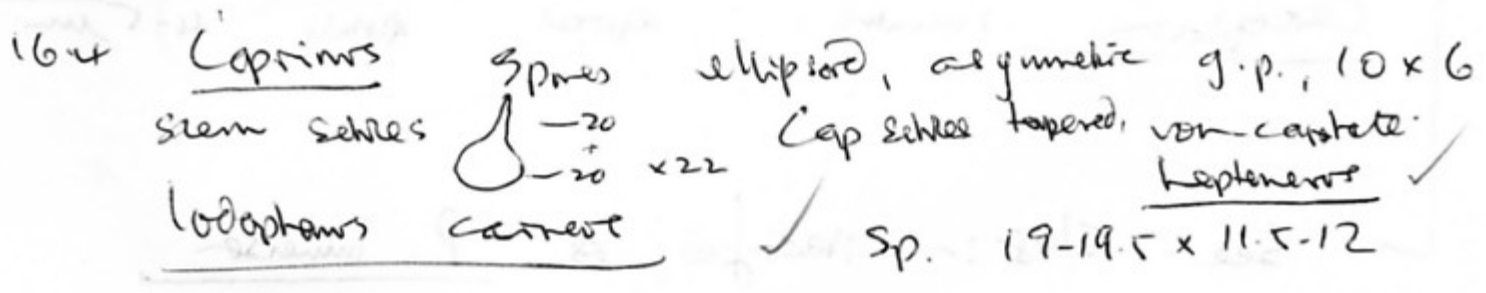 164 Coprinus Spores ellipsoid, asymmetric g.p., 10 x 6
stem setules —20 + —20 x22 Cap setules tapered, non-capitate.
heptemerus ✓
Iodophanus carneus ✓ Sp. 19-19.5 x 11.5-12